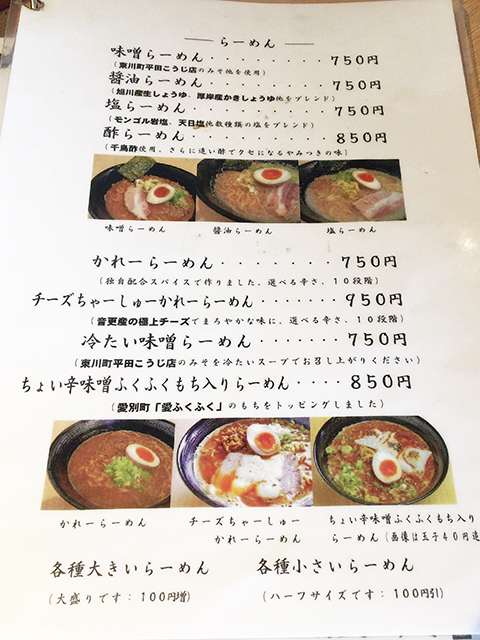 らーめん
味噌らーめん・・・・・・・・・750円
(東川町平田こうじ店のみそ他を使用)
醤油らーめん・・・・・・・・・750円
(旭川産生しょうゆ、厚岸産かきしょうゆ他をブレンド)
塩らーめん・・・・・・・・・・750円
(モンゴル岩塩、天日塩他数種類の塩をブレンド)
酢らーめん・・・・・・・・・・850円
(千鳥酢使用、さらに追い酢でクセになるやみつきの味)
味噌らーめん 醤油らーめん 塩らーめん
かれーらーめん・・・・・・・・750円
(独自配合スパイスで作りました、選べる辛さ、10段階)
チーズちゃーしゅーかれーらーめん・・・・・・950円
(音更産の極上チーズでまろやかな味に、選べる辛さ、10段階)
冷たい味噌らーめん・・・・・・750円
(東川町平田こうじ店のみそを冷たいスープでお召し上がりください)
ちょい辛味噌ふくふくもち入りらーめん・・・・850円
(愛別町「愛ふくふく」のもちをトッピングしました)
かれーらーめん
チーズちゃーしゅー
かれーらーめん
ちょい辛味噌ふくふくもち入り
らーめん(画像は玉子40円
各種大きいらーめん
(大盛りです:100円増)
各種小さいらーめん
(ハーフサイズです:100円引)